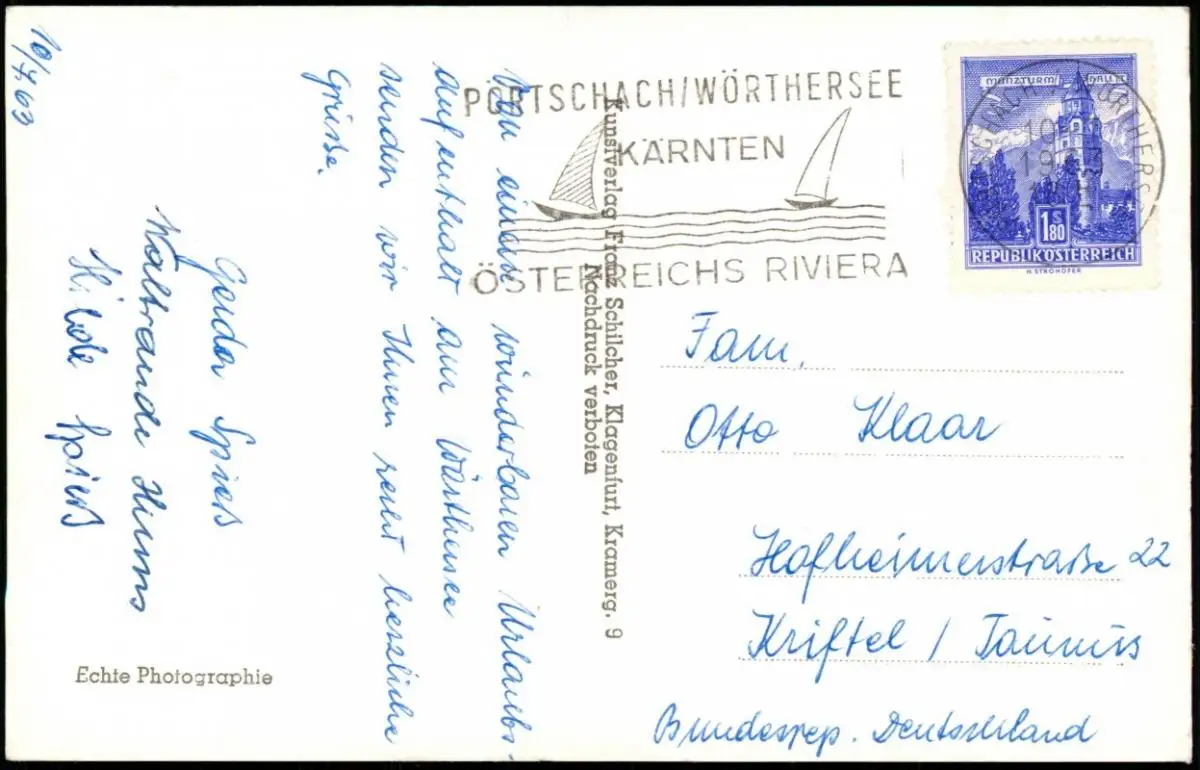 10/7.63
Von einem wunderbaren Urlaubs-
aufenthalt am Wörthersee
senden wir Ihnen recht herzliche
Grüße.
Gerda Spieß
Waltraude Hums
Hilde Spieß
Echte Photographie
Kunstverlag Franz Schilcher, Klagenfurt, Kramerg. 9
Nachdruck verboten
PÖRTSCHACH/WÖRTHERSEE
KÄRNTEN
ÖSTERREICHS RIVIERA
MÜNZTURM HALL I. T.
1963
S
1.80
REPUBLIK ÖSTERREICH
H. STROHOFER
Fam.
Otto Klaar
Hofheimerstraße 22
Kriftel / Taunus
Bundesrep. Deutschland